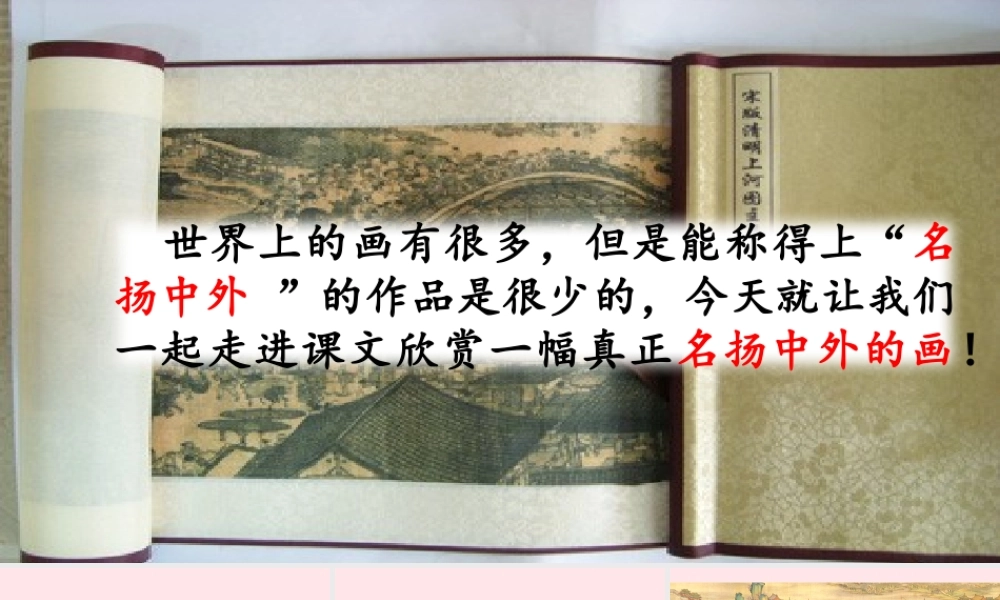 世界上的画有很多，但是能称得上“名
扬中外 ”的作品是很少的，今天就让我们
一起走进课文欣赏一幅真正名扬中外的画！
清明上河图